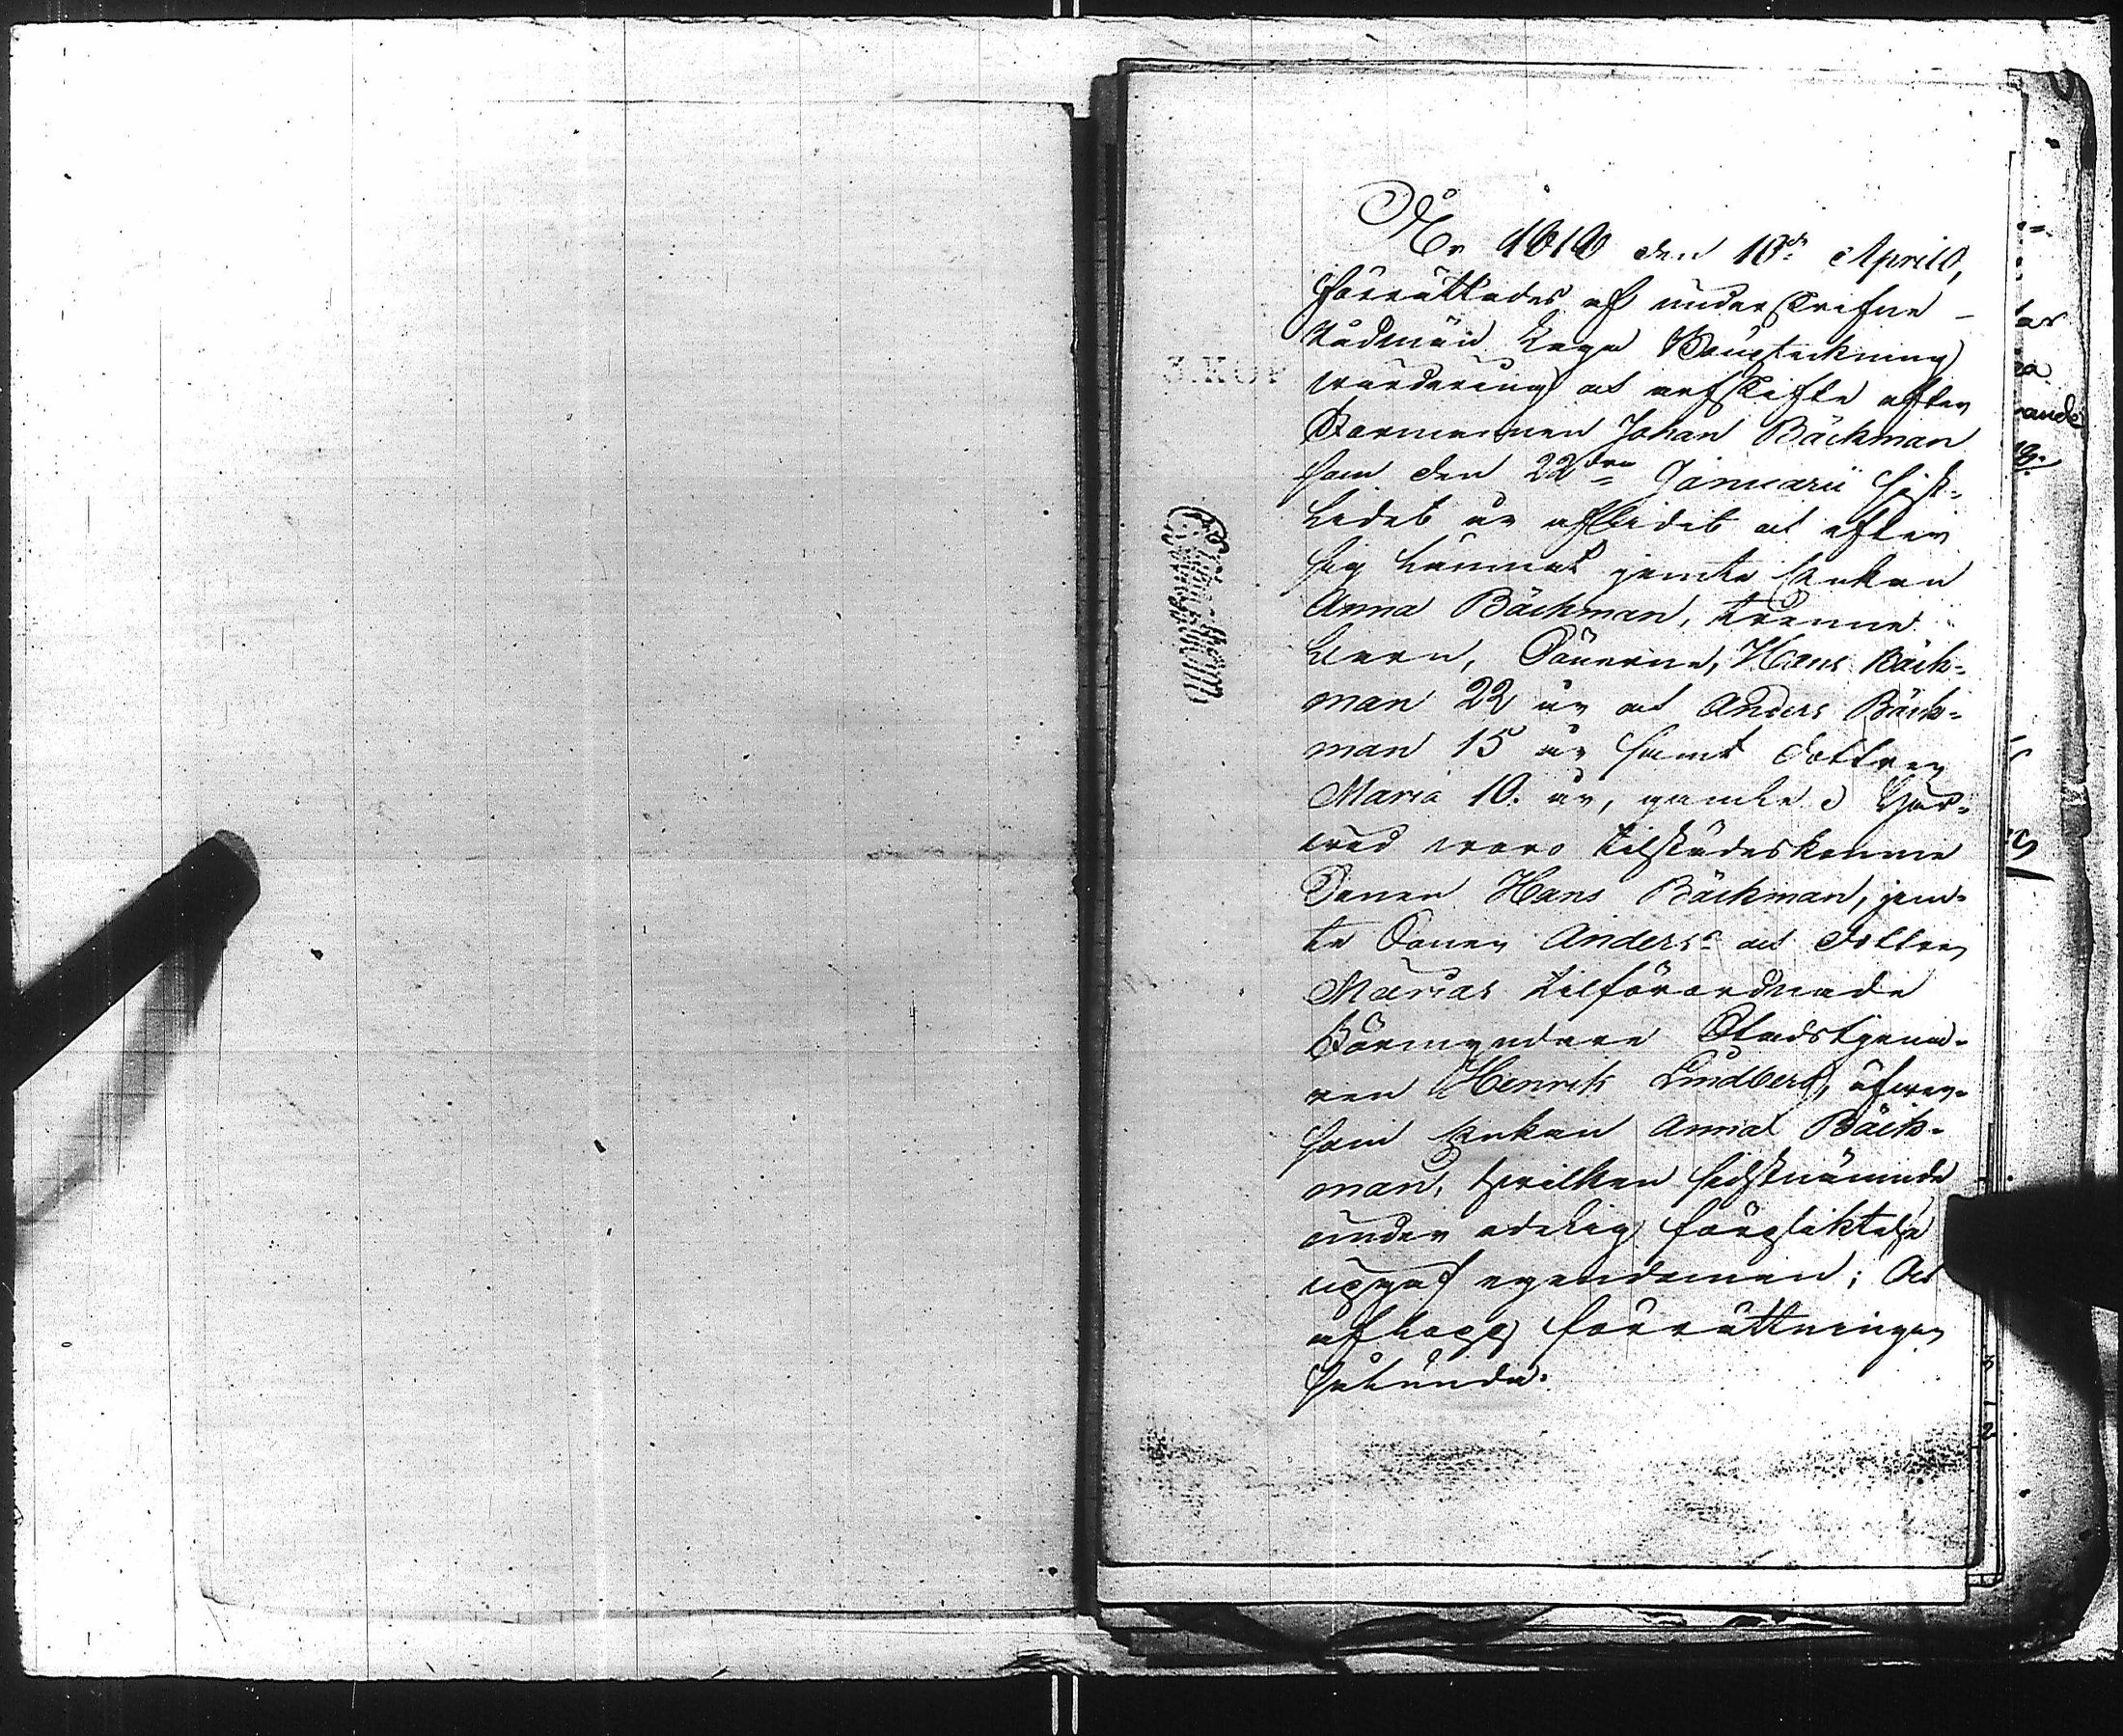 År 1818 den 18de April,
förrättades af underskrifne
Rådmän laga Bouptekning
wärdering ock arfskifte efter
Formannen Johan Bäckman
som den 22dra Januarii sist-
ledet år aflidit ock efter
sig lämnat jemte Enkan
Anna Bäckman, trenne
barn, Sönerne, Hans Bäck-
man 22 år ock Anders Bäck-
man 15 år samt dottren
Maria 10 år, gamle; Här-
wid woro tilstädeskomne
Sonen Hans Bäckman, jem-
te Sonen Anders ock dottren
Marias tilförordnade
Förmyndare Stadstjena-
ren Henrik Lindberg, äfwen-
som Enkan Anna Bäck-
man, hwilken sidstnämnde
under edelig förpliktelse
uppgaf egendomen; Ock
aflopp förrättningen
sålunda.
3. KOP